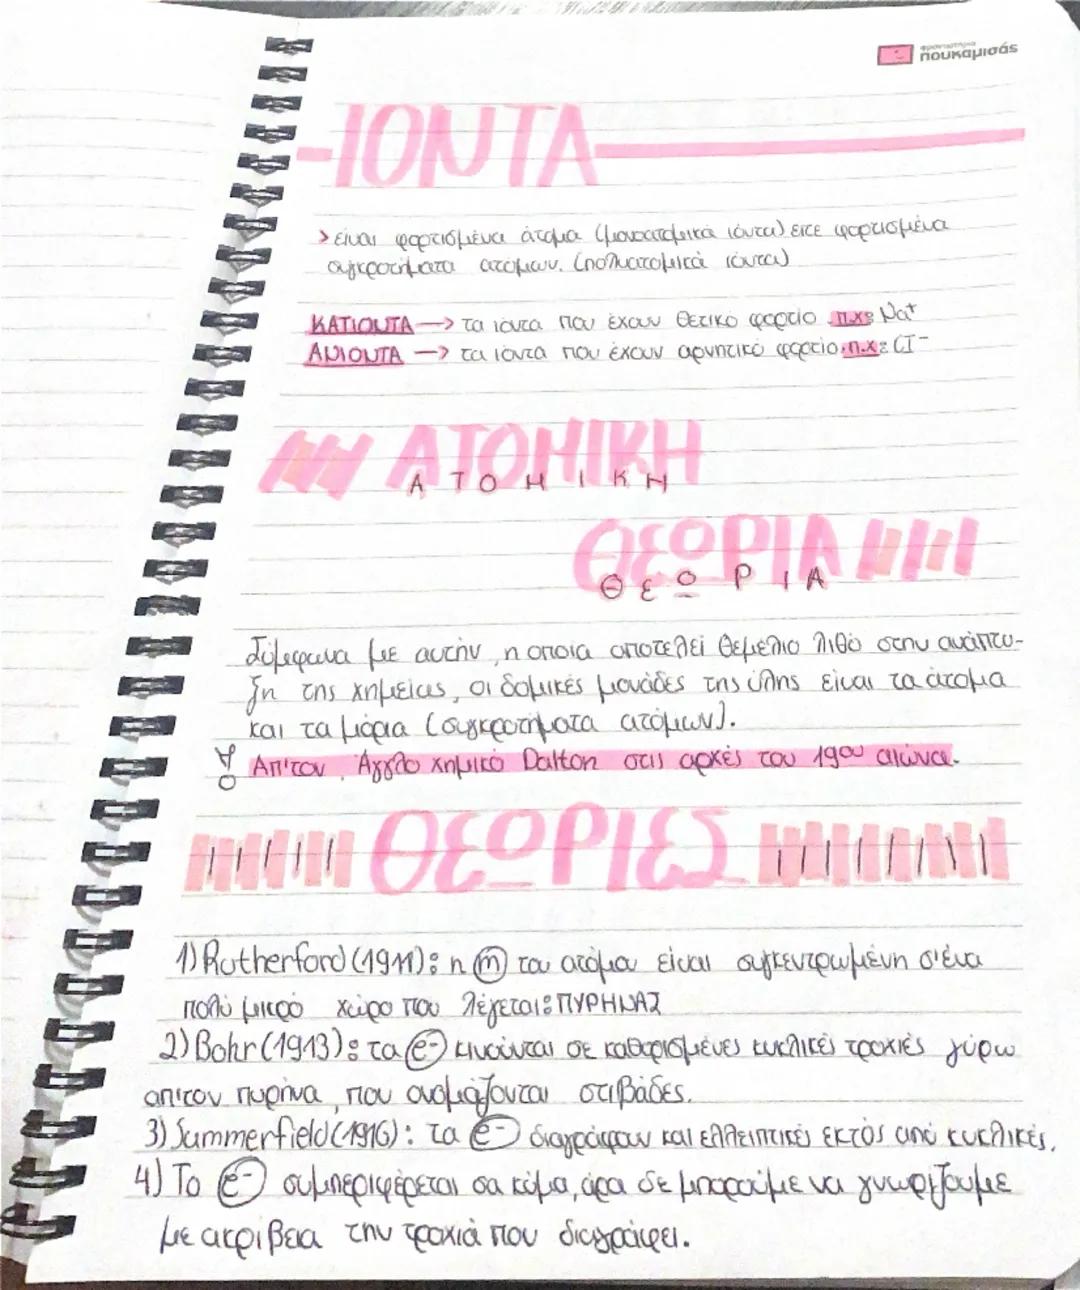 φροντιστήρια
πουκαμισάς
ΙΟΝΤΑ
> είναι φορτισμένα άτομα (μονοατομικά ιόντα) είτε φορτισμένα
συγκροτήματα ατόμων. (πολυατομικά ιόντα)
ΚΑΤΙΟΝΤΑ → τα ιόντα που έχουν θετικό φορτίο π.χ: Na+
ΑΝΙΟΝΤΑ → τα ιόντα που έχουν αρνητικό φορτίο π.χ: CI-
ΑΤΟΜΙΚΗ
ΑΤΟΜΙΚΗ
ΘΕΩΡΙΑ
ΘΕΩΡΙΑ
Σύμφωνα με αυτήν, η οποία αποτελεί θεμέλιο λίθο στην ανάπτυ-
ξη της χημείας, οι δομικές μονάδες της ύλης είναι τα άτομα
και τα μόρια (συγκροτήματα ατόμων).
Απ'τον Άγγλο χημικό Dalton στις αρχές του 19ου αιώνα.
ΘΕΩΡΙΕΣ
1) Rutherford (1911): η m του ατόμου είναι συγκεντρωμένη σ'ένα
πολύ μικρό χώρο που λέγεται: ΠΥΡΗΝΑΣ
2) Bohr (1913): τα e- κινούνται σε καθορισμένες κυκλικές τροχιές γύρω
απ'τον πυρήνα, που ονομάζονται στιβάδες.
3) Summerfield (1916): τα e- διαγράφουν και ελλειπτικές εκτός από κυκλικές.
4) Το e- συμπεριφέρεται σα κύμα, άρα δε μπορούμε να γνωρίζουμε
με ακρίβεια την τροχιά που διαγράφει.